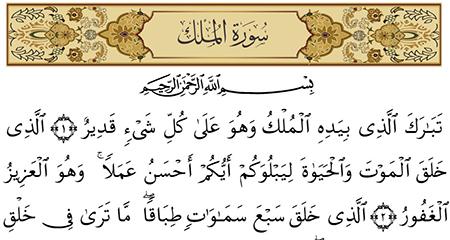 سُورَةُ المُلْكِ
بِسْمِ اللَّهِ الرَّحْمَٰنِ الرَّحِيمِ
تَبَٰرَكَ ٱلَّذِى بِيَدِهِ ٱلْمُلْكُ وَهُوَ عَلَىٰ كُلِّ شَىْءٍ قَدِيرٌ ﴿١﴾ ٱلَّذِى
خَلَقَ ٱلْمَوْتَ وَٱلْحَيَوٰةَ لِيَبْلُوَكُمْ أَيُّكُمْ أَحْسَنُ عَمَلًا ۚ وَهُوَ ٱلْعَزِيزُ
ٱلْغَفُورُ ﴿٢﴾ ٱلَّذِى خَلَقَ سَبْعَ سَمَٰوَٰتٍ طِبَاقًا ۖ مَّا تَرَىٰ فِى خَلْقِ